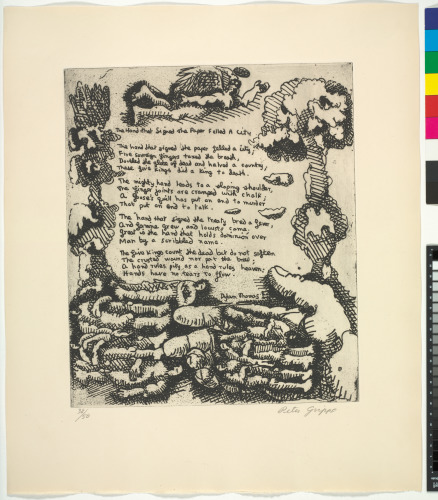 The Hand that Signed the Paper Felled A City
The hand that signed the paper felled a city;
Five sovereign fingers taxed the breath,
Doubled the globe of dead and halved a country;
These five kings did a king to death.
The mighty hand leads to a sloping shoulder,
The finger joints are cramped with chalk;
A goose's quill has put an end to murder
That put an end to talk.
The hand that signed the treaty bred a fever,
And famine grew, and locusts came;
Great is the hand that holds dominion over
Man by a scribbled name.
The five kings count the dead but do not soften
The crusted wound nor pat the brow;
A hand rules pity as a hand rules heaven;
Hands have no tears to flow.
Dylan Thomas
Peter Grippe